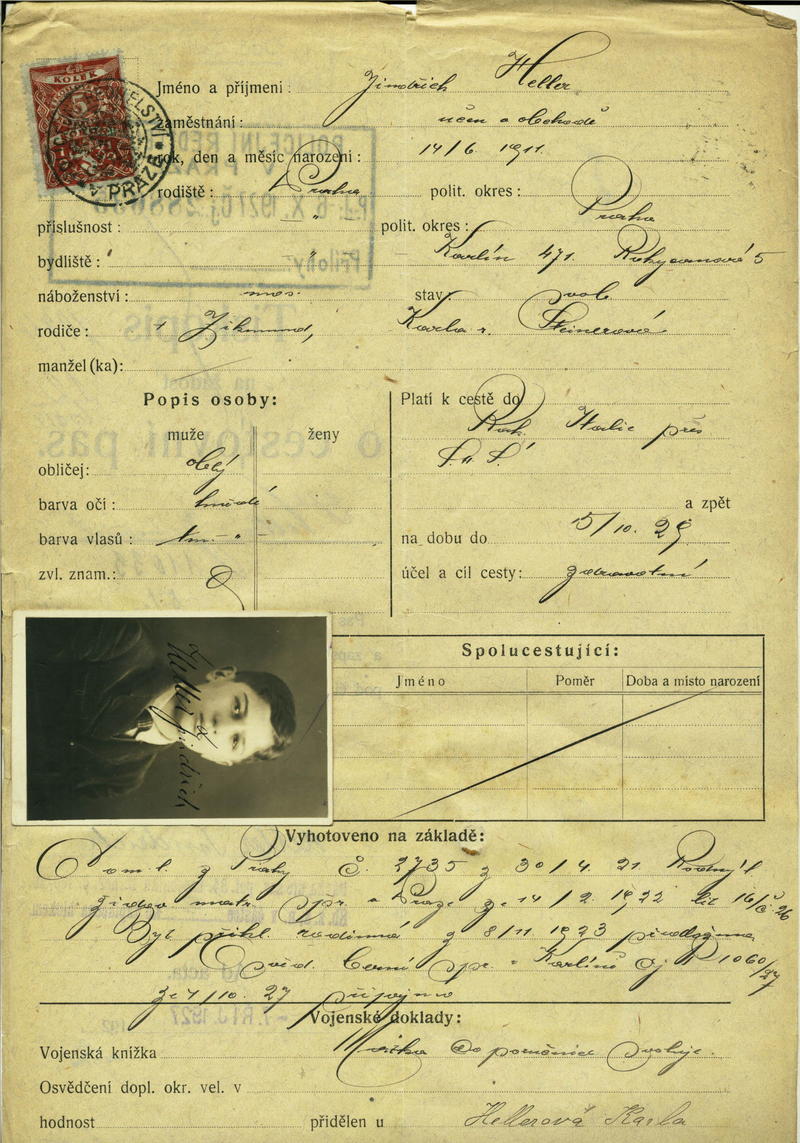 ČR
KOLEK
PRAZE
Jméno a příjmení : Jindřich Heller
zaměstnání : učen o obchodě
rok, den a měsíc narození : 14/6. 1911.
rodiště : Praha polit. okres : Praha
příslušnost : " polit. okres :
bydliště : " Karlín 471. Rokycanova 5
náboženství : mos. stav: svob
rodiče : † Zikmund, Karla r. Steinerová
manžel (ka):
Popis osoby:
muže ženy
obličej: oblý
barva očí : hnědé
barva vlasů : tm. - " -
zvl. znam.:
Platí k cestě do
Rak. Italie přes
a zpět
na dobu do 15/10. 29
účel a cíl cesty: zdravotní
Heller Jindřich
Spolucestující:
Jméno Poměr Doba a místo narození
Vyhotoveno na základě:
Dom. l. z Prahy Č. 2735 z 30/4. 21 Rodný l
židov. matr. spr. v Praze ze 14/2. 1922 lit 16/
Byt. přihl. rodinná z 8/11. 1923 předložena
Osvěd. Berní spr. v Karlíně čj 1060/27
ze 4/10. 27 připojeno
Vojenské doklady:
Vojenská knížka Matka co poručnice svoluje.
Osvědčení dopl. okr. vel. v
hodnost přidělen u Hellerová Karla